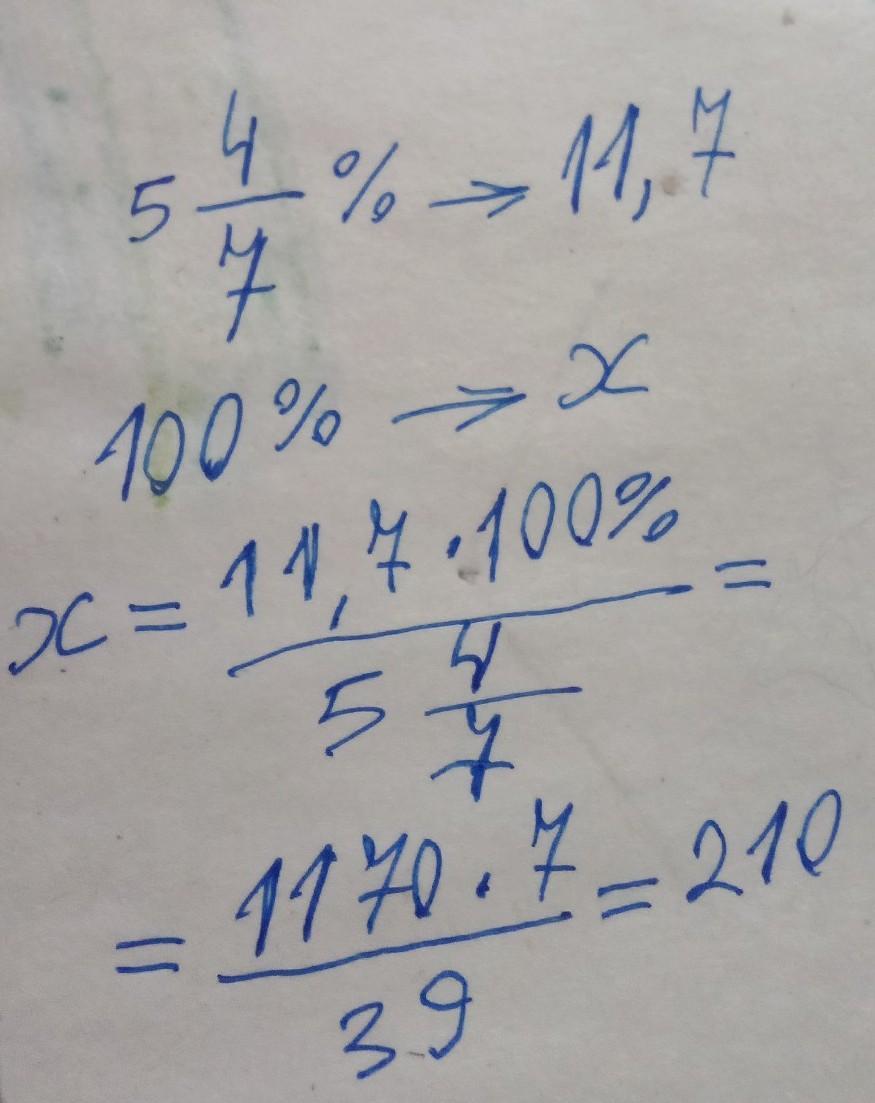 5 4/7 % → 11,7
100% → x
x = 11,7 · 100% / 5 4/7 =
= 1170 · 7 / 39 = 210